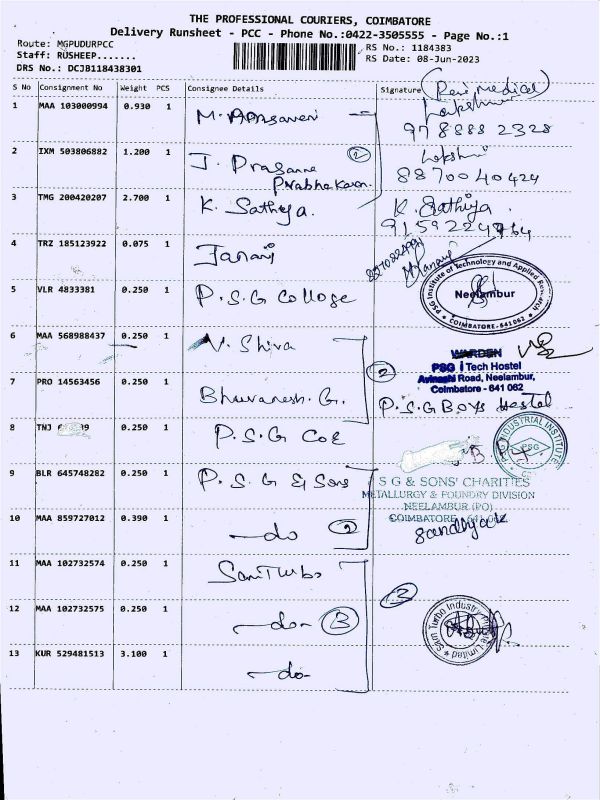 THE PROFESSIONAL COURIERS, COIMBATORE
Delivery Runsheet - PCC - Phone No.:0422-3505555 - Page No.:1
Route: MGPUDURPCC
RS No.: 1184383
Staff: RUSHEEP.......
RS Date: 08-Jun-2023
DRS No.: DCJB118438301
S No Consignment No Weight PCS Consignee Details Signature
(Ravi medical)
1 MAA 103000994 0.930 1
Lakshmi
978888 2328
2 IXM 503806882 1.200 1 J. Prasanna
Prabhakaran. 2
Lakshmi
8870040424
3 TMG 200420207 2.700 1 K. Sathiya. K. Sathiya.
9159224764
4 TRZ 185123922 0.075 1 Janani
5 VLR 4833381 0.250 1 P.S.G College
PSG Institute of Technology and Applied Research
Neelambur
COIMBATORE-641062
6 MAA 568988437 0.250 1 V. Shiva
WARDEN
PSG i Tech Hostel
Avinashi Road, Neelambur,
Coimbatore - 641 062
7 PRO 14563456 0.250 1 Bhuvanesh. G. 2
P.S.G Boys Hostel
8 TNJ 0.250 1 P.S.G COE
PSG INDUSTRIAL INSTITUTE
PSG
9 BLR 645748282 0.250 1 P.S.G & Sons
S G & SONS' CHARITIES
METALLURGY & FOUNDRY DIVISION
NEELAMBUR (PO)
COIMBATORE - 641 062
10 MAA 859727012 0.390 1 -do 2
Sandhya
11 MAA 102732574 0.250 1 Sam Turbo
12 MAA 102732575 0.250 1 -do- 3
3
Sam Turbo Industry Private Limited
13 KUR 529481513 3.100 1 -do-